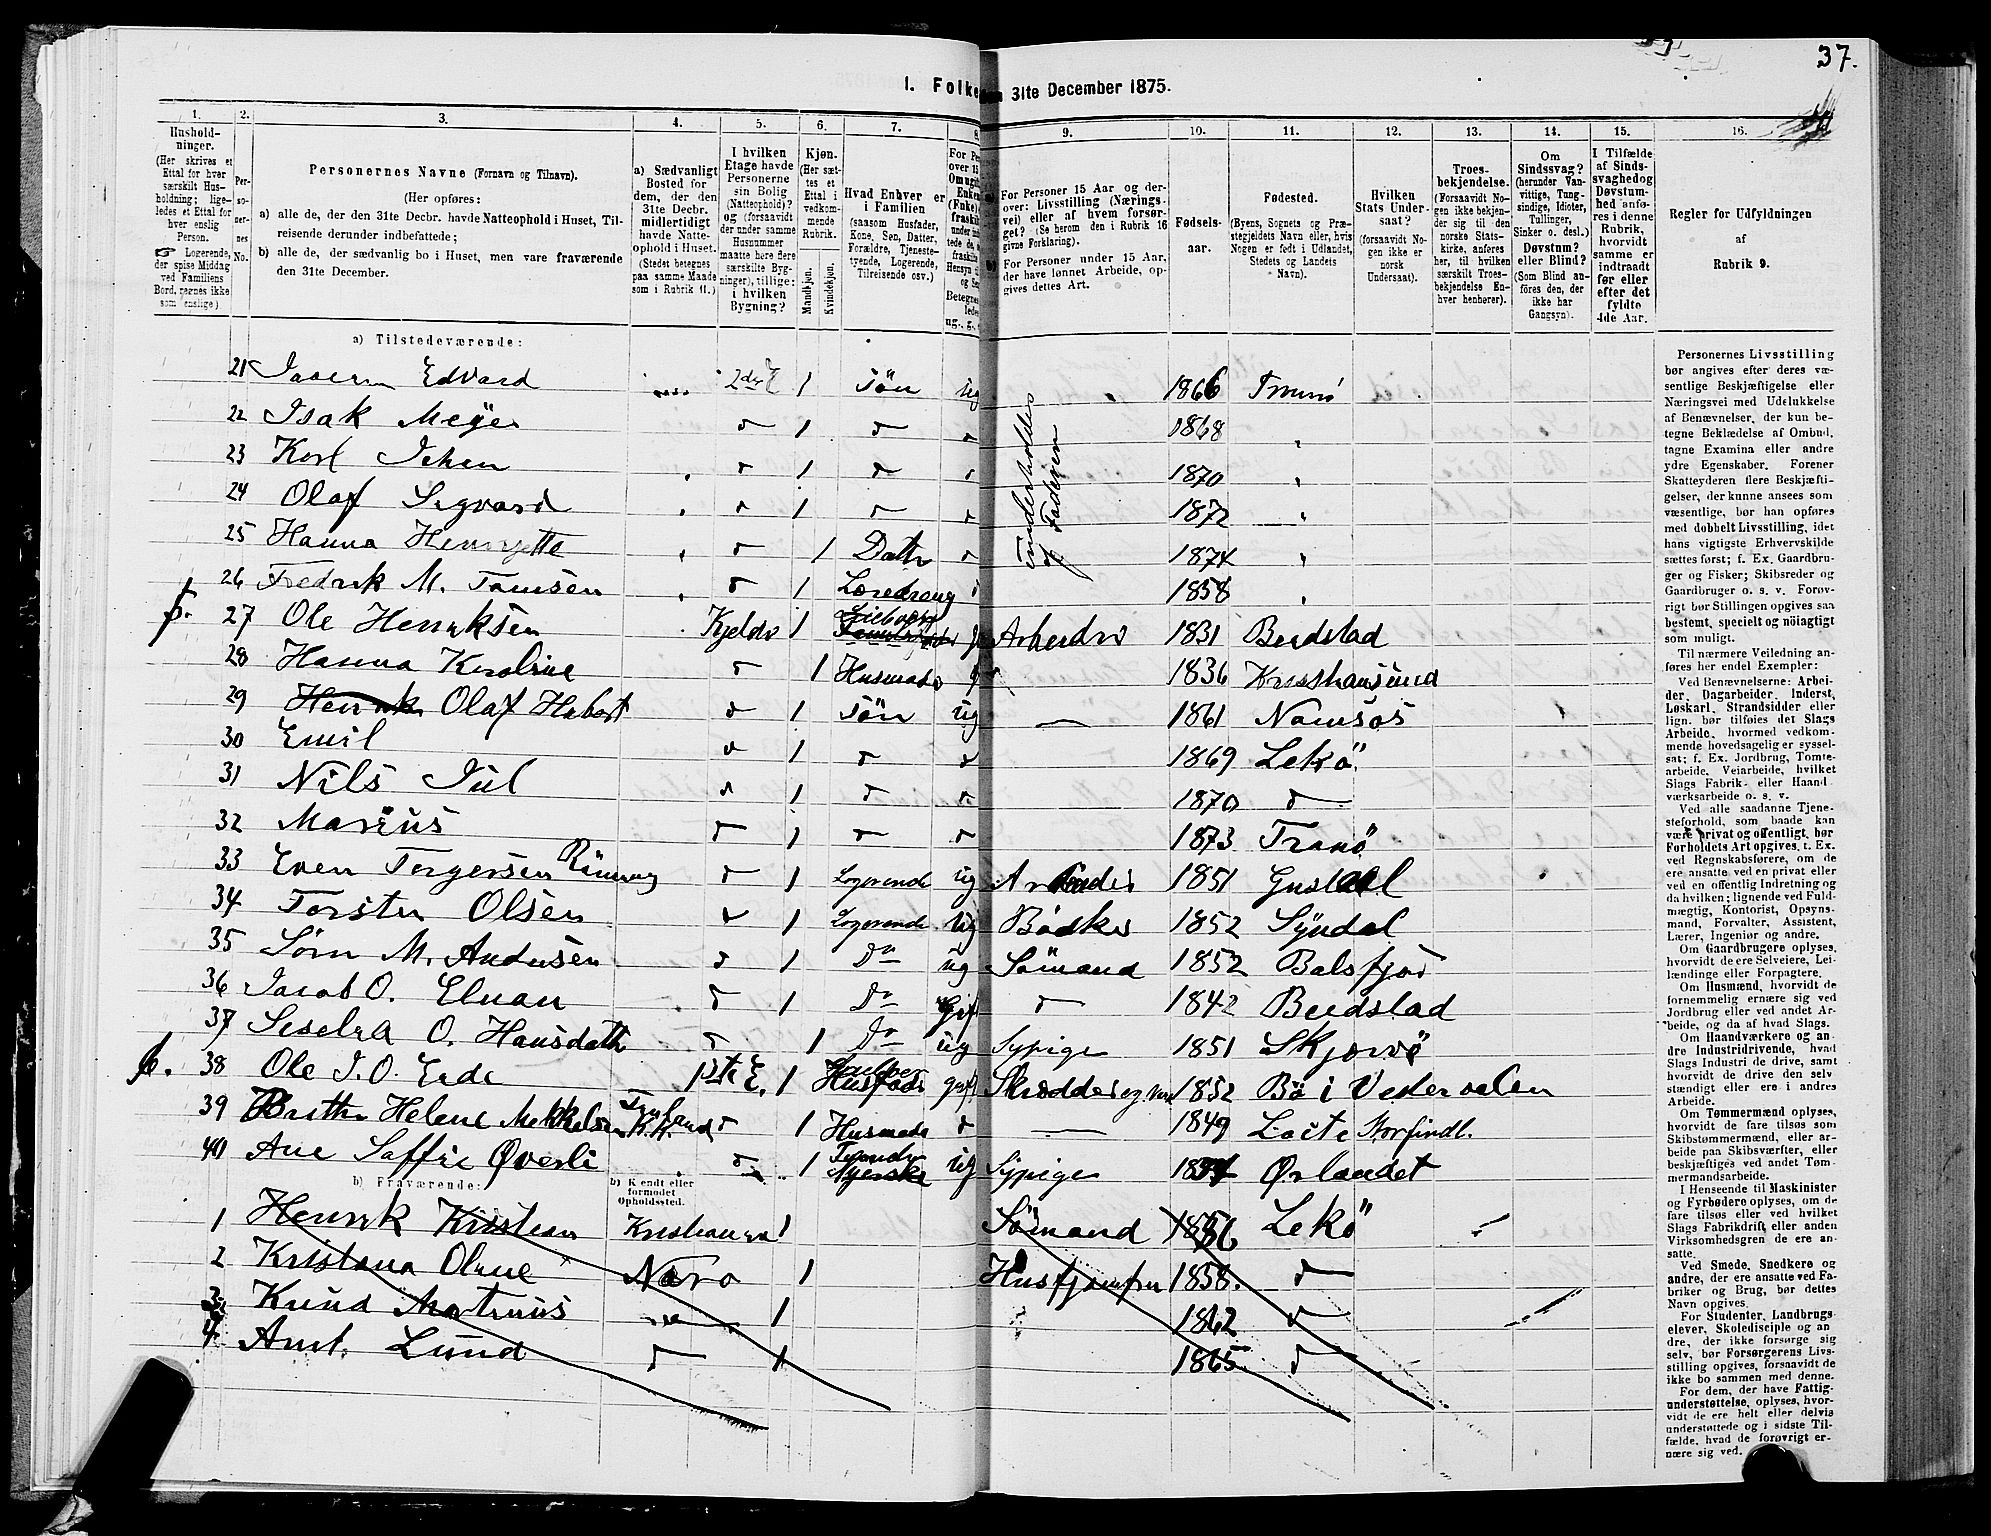 37.
1. Folke
31te December 1875.
1. 2. 3. 4. 5. 6. 7. 8. 9. 10. 11. 12. 13. 14. 15. 16.
Hushold-
ninger.
(Her skrives et
Ettal for hver
særskilt Hus-
holdning; lige-
ledes et Ettal for
hver enslig
Person.
Logerende,
der spise Middag
ved Familiens
Bord, regnes ikke
som enslige)
Per-
so-
ner-
nes
No.
Personernes Navne (Fornavn og Tilnavn).
(Her opføres:
a) alle de, der den 31te Decbr. havde Natteophold i Huset, Til-
reisende derunder indbefattede;
b) alle de, der sædvanlig bo i Huset, men vare fraværende
den 31te December.
a) Sædvanligt
Bosted for
dem, der den
31te Decbr.
midlertidigt
havde Natte-
ophold i Huset.
(Stedet betegnes
paa samme Maade
som i Rubrik 11.)
I hvilken
Etage havde
Personerne
sin Bolig
(Natteophold)?
og (forsaavidt
der under samme
Husnummer
maatte høre flere
særskilte Byg-
ninger), tillige:
i hvilken
Bygning?
Kjøn.
(Her sæt-
tes et
Ettal i
vedkom-
mende
Rubrik.
Mandkjøn.
Kvindekjøn.
Hvad Enhver er
i Familien
(saasom Husfader,
Kone, Søn, Datter,
Forældre, Tjeneste-
tyende, Logerende,
Tilreisende osv.)
For Personer 15 Aar og der-
over: Livsstilling (Nærings-
vei) eller af hvem forsør-
get? (Se herom den i Rubrik 16
givne Forklaring).
For Personer under 15 Aar,
der have lønnet Arbeide, op-
gives dettes Art.
Fødsels-
aar.
Fødested.
(Byens, Sognets og Præ-
stegjeldets Navn eller, hvis
Nogen er født i Udlandet,
Stedets og Landets
Navn).
Hvilken
Stats Under-
saat?
(forsaavidt No-
gen ikke er
norsk
Undersaat).
Troes-
bekjendelse.
(Forsaavidt No-
gen ikke bekjen-
der sig til den
norske Stats-
kirke, anføres
her, til hvilken
særskilt Troes-
bekjendelse En-
hver henhører).
Om
Sindssvag?
(herunder Van-
vittige, Tung-
sindige, Idioter,
Tullinger,
Sinker o. desl.)
Døvstum?
eller Blind?
(Som Blind an-
føres den, der
ikke har
Gangsyn).
I Tilfælde
af Sinds-
svaghed og
Døvstum-
hed anfø-
res i denne
Rubrik,
hvorvidt
samme er
indtraadt
før eller
efter det
fyldte
4de Aar.
Regler for Udfyldningen
af
Rubrik 9.
a) Tilstedeværende:
21 Edvard 2den E 1 Søn ug 1866 Tromsö
22 Isak Meÿer 1 1868
23 Karl Johan 1 1870
24 Olaf Sigvard 1 1872
25 Hanna Henryette 1 Datter 1874
Underholdes
af Faderen
26 Fredrik M. Tomsen 1 Læredreng 1858
27 Ole Henriksen Kjelder 1 Arbeider 1831 Beidstad
28 Hanna Karoline 1 Husmoder 1836 Kristiansund
29 Henrik Olaf Hubert 1 Søn ug 1861 Namsos
30 Emil 1 1869 Lekö
31 Nils Jul 1 1870
32 Marius 1 1873 Tranö
33 Even Torgersen Rönning 1 Logerende ug Arbeider 1851
34 Torsten Olsen 1 Logerende ug Bödker 1852
35 Sörn M. Andersen 1 Do ug Sömand 1852 Balsfjor
36 Jacob O. Elnan 1 Do Gift 1842 Beidstad
37 O. Hansdatter 1 Do ug Sypige 1851 Skjervö
38 Ole J. O. Eide 1ste E. 1 Husfader gift Skrædder 1852 Bö i Vesteraalen
39 Helene Mekkelsen 1 Husmoder 1849
40 Ane Saffie Øverli 1 ug Sypige Ørlandet
b) Fraværende:
b) Kjendt eller
formodet
Opholdssted.
1 Henrik Kristian 1 Sömand 1856 Lekö
2 Kristana Oline Narø 1 Husjomfru 1858
3 Knud Martinus 1 1862
4 Arnt. Lund 1 1865
Personernes Livsstilling
bør angives efter deres væ-
sentlige Beskjæftigelse eller
Næringsvei med Udelukkelse
af Benævnelser, der kun be-
tegne Beklædelse af Ombud,
tagne Examina eller andre
ydre Egenskaber. Forener
Skatteyderen flere Beskjæfti-
gelser, der kunne ansees som
væsentlige, bør han opføres
med dobbelt Livsstilling, idet
hans vigtigste Erhvervskilde
sættes først; f. Ex. Gaardbru-
ger og Fisker; Skibsreder og
Gaardbruger o. s. v. Forøv-
rigt bør Stillingen opgives saa
bestemt, specielt og nöiagtigt
som muligt.
Til nærmere Veiledning an-
føres her endel Exempler:
Ved Benævnelserne: Arbei-
der, Dagarbeider, Inderst,
Løskarl, Strandsidder eller
lign. bør tilføies det Slags
Arbeide, hvormed vedkom-
mende hovedsagelig er syssel-
sat; f. Ex. Jordbrug, Tomte-
arbeide, Veiarbeide, hvilket
Slags Fabrik- eller Haand
værksarbeide o. s. v.
Ved alle saadanne Tjene-
steforhold, som baade kan
være privat og offentligt, bør
Forholdets Art opgives, t. Ex.
ved Regnskabsførere, om de
ere ansatte ved en privat eller
ved en offentlig Indretning og
da hvilken; lignende ved Fuld-
mægtig, Kontorist, Opsyns-
mand, Forvalter, Assistent,
Lærer, Ingeniør og andre.
Om Gaardbrugere oplyses,
hvorvidt de ere Selveiere, Lei-
lændinge eller Forpagtere.
Om Husmænd, hvorvidt de
fornemmelig ernære sig ved
Jordbrug eller ved andet Ar-
beide, og da af hvad Slags.
Om Haandværkere og an-
dre Industridrivende, hvad
Slags Industri de drive, samt
hvorvidt de drive den selv-
stændigt eller ere i andres
Arbeide.
Om Tømmermænd oplyses,
hvorvidt de fare tilsøs som
Skibstømmermænd, eller ar-
beide paa Skibsværfter, eller
beskjæftiges ved andet Töm-
mermandsarbeide.
I Henseende til Maskinister
og Fyrbødere oplyses, om de
fare tilsøs eller ved hvilket
Slags Fabrikdrift eller anden
Virksomhedsgren de ere an-
satte.
Ved Smede, Snedkere og
andre, der ere ansatte ved Fa-
briker og Brug, bør dettes
Navn opgives.
For Studenter, Landbrugs-
elever, Skoledisciple og an
dre, der ikke forsørge sig
selv, bør Forsørgerens Livs-
stilling opgives, forsaavidt de
ikke bo sammen med denne.
For dem, der have Fattig-
understøttelse, oplyses, hvor-
vidt de ere helt eller delvis
understøttede og i sidste Til-
fælde, hvad de forøvrigt er-
nære sig ved.